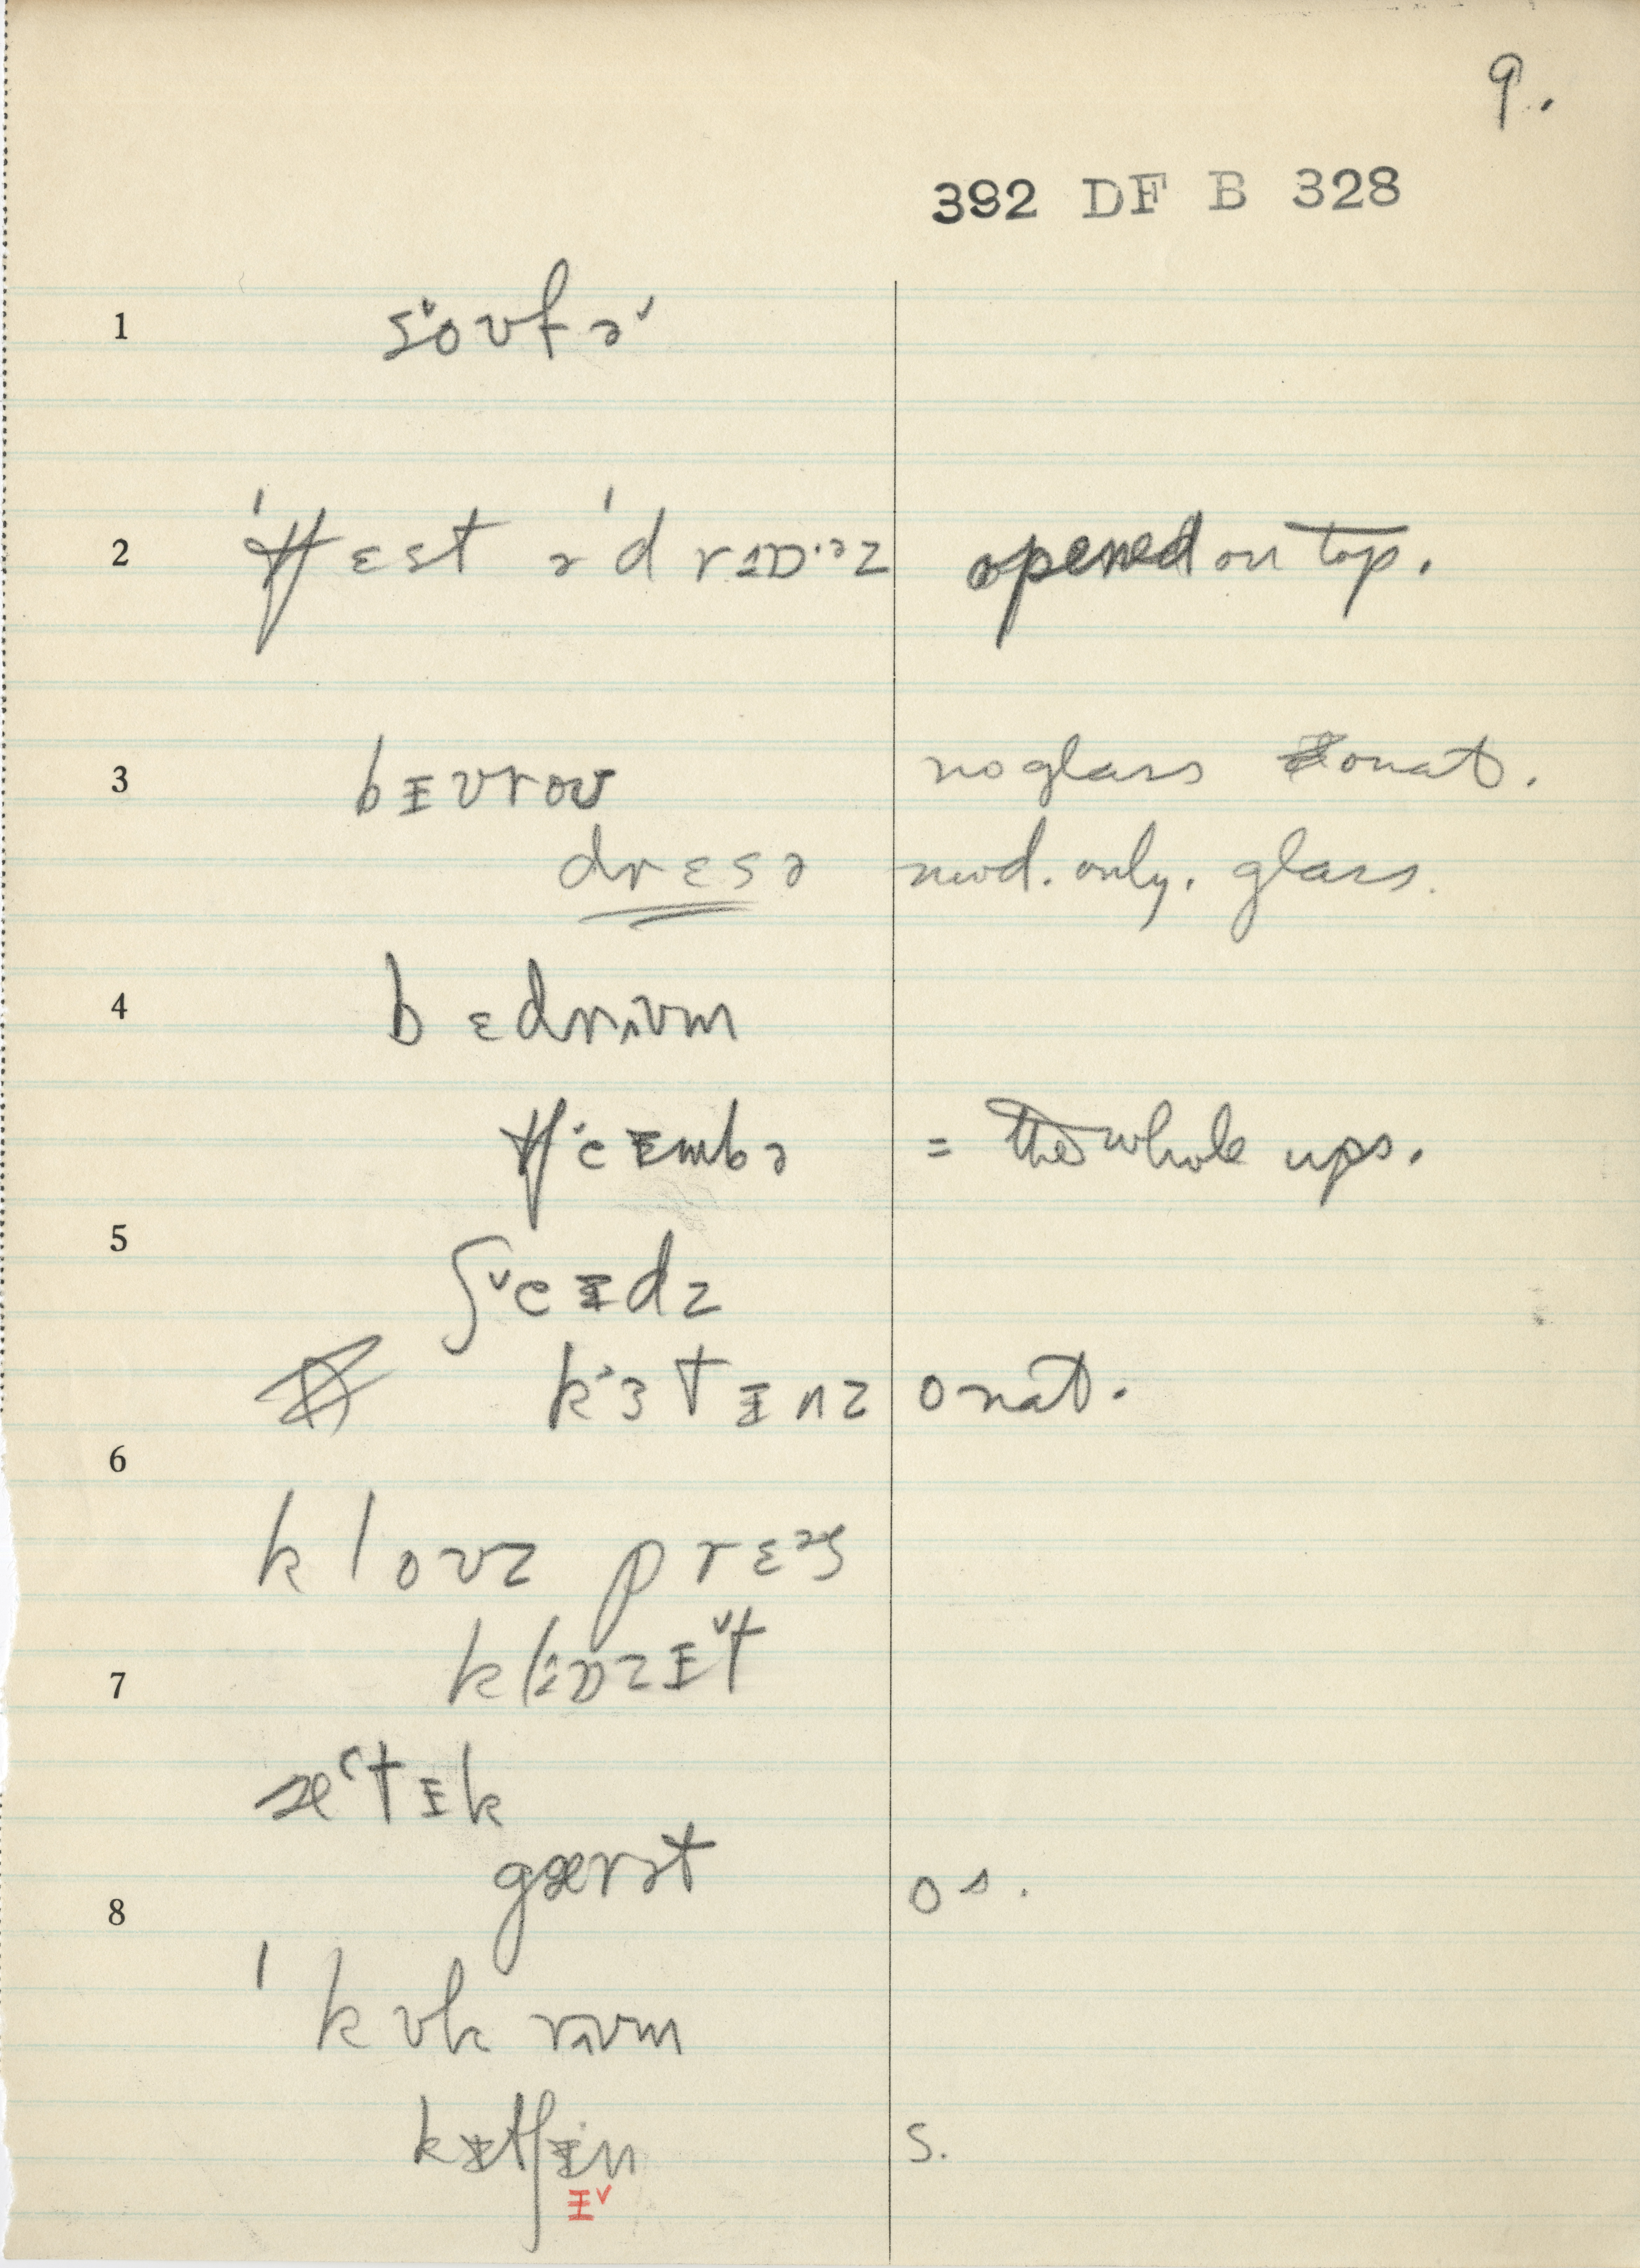 9.
392 DF B 328
1 sˇoʊfəˇ
2 ˈtʃɛst əˈdrɔɒ·ᵊz opened on top.
3 bɪʊroʊ no glass onat.
drɛsə mod. only. glass.
4 bɛdrʌʊm
tʃˑeɪmbə = the whole ups.
5
ʃˇeɪdz
kˑɜtɪnz onat.
6
kloʊz prɛᵊs
7 klɒzɪˇt
ætɪk
gærət os.
8
ˈkʊk rʌʊm
kɪtʃɪn s.
ɪˇ